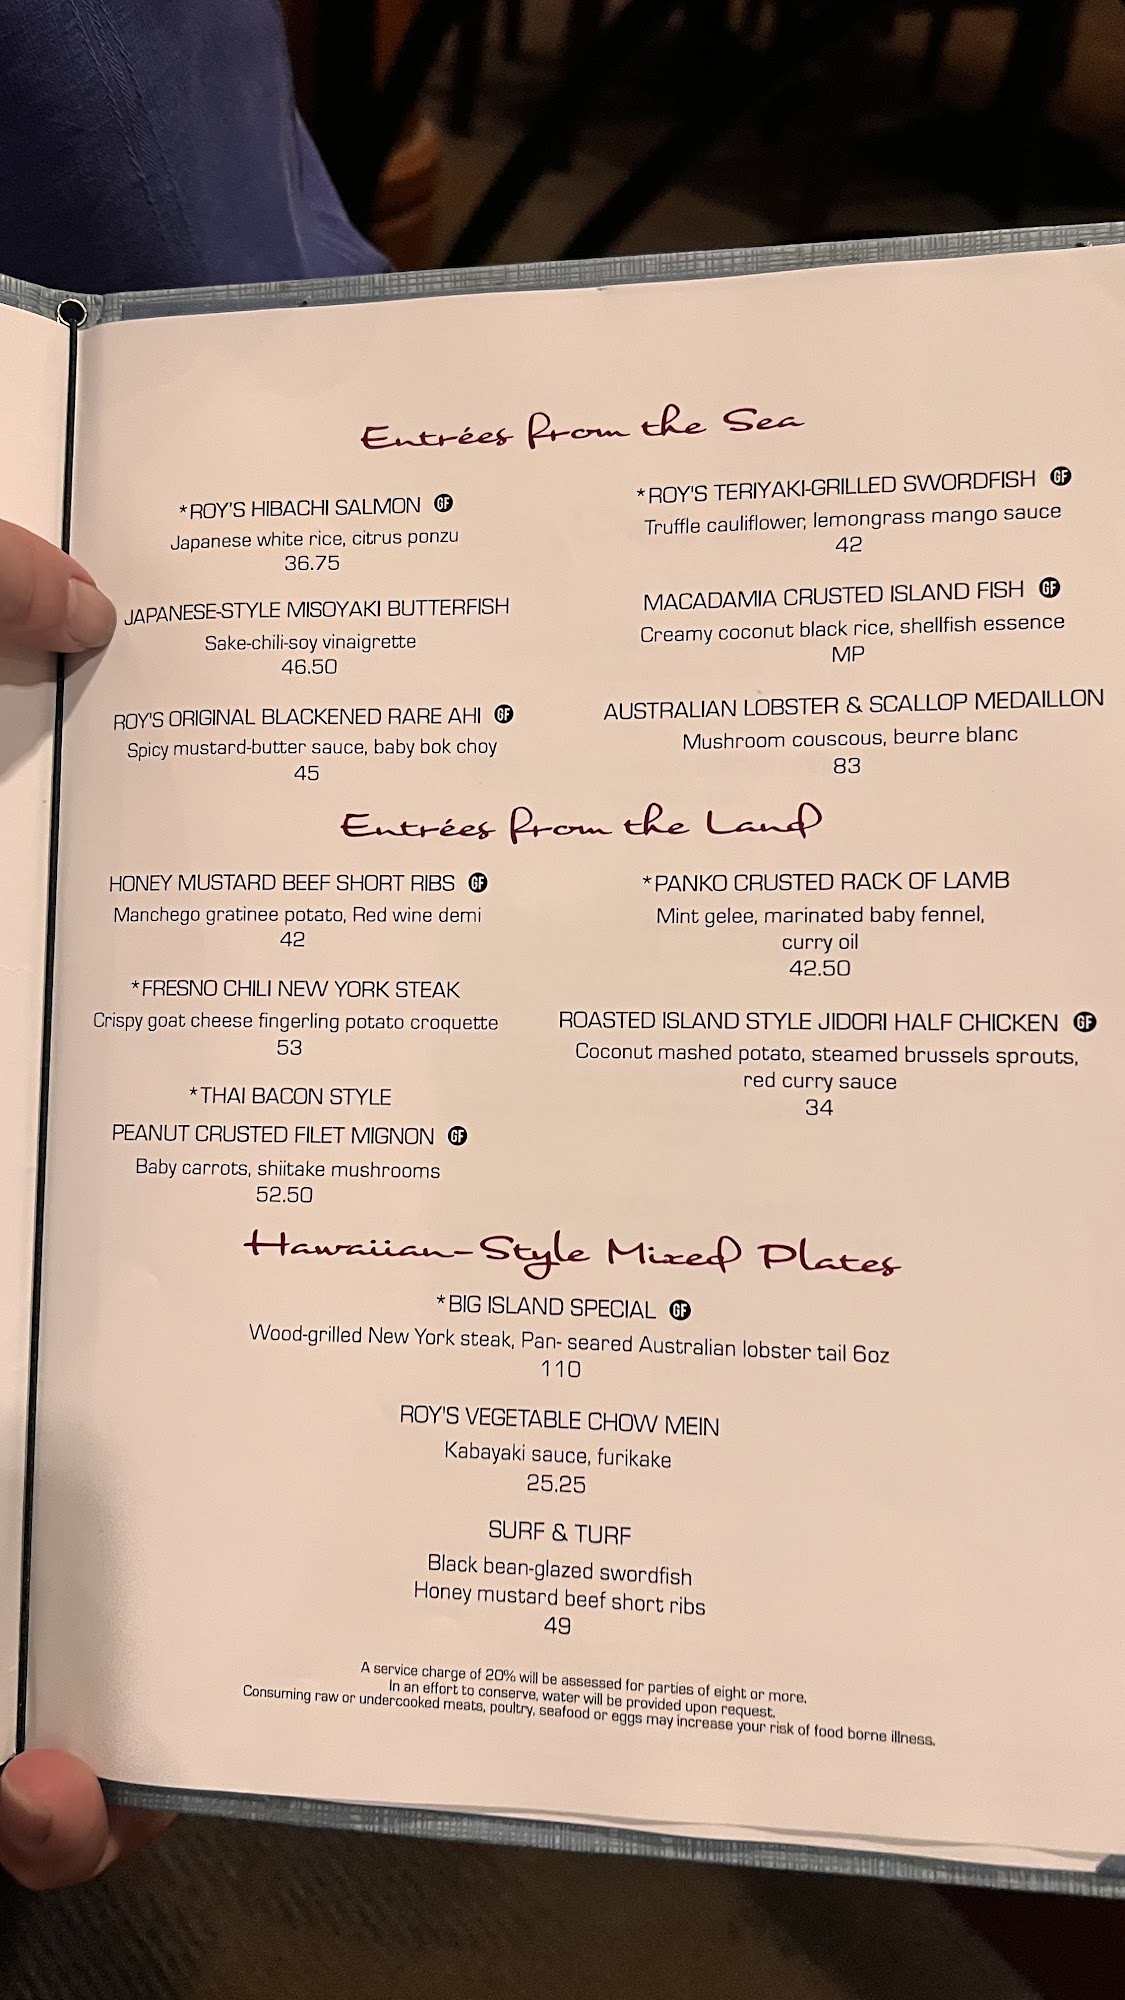 Entrées from the Sea
*ROY'S HIBACHI SALMON GF
Japanese white rice, citrus ponzu
36.75
JAPANESE-STYLE MISOYAKI BUTTERFISH
Sake-chili-soy vinaigrette
46.50
ROY'S ORIGINAL BLACKENED RARE AHI GF
Spicy mustard-butter sauce, baby bok choy
45
*ROY'S TERIYAKI-GRILLED SWORDFISH GF
Truffle cauliflower, lemongrass mango sauce
42
MACADAMIA CRUSTED ISLAND FISH GF
Creamy coconut black rice, shellfish essence
MP
AUSTRALIAN LOBSTER & SCALLOP MEDAILLON
Mushroom couscous, beurre blanc
83
Entrées from the Land
HONEY MUSTARD BEEF SHORT RIBS GF
Manchego gratinee potato, Red wine demi
42
*FRESNO CHILI NEW YORK STEAK
Crispy goat cheese fingerling potato croquette
53
*THAI BACON STYLE
PEANUT CRUSTED FILET MIGNON GF
Baby carrots, shiitake mushrooms
52.50
*PANKO CRUSTED RACK OF LAMB
Mint gelee, marinated baby fennel,
curry oil
42.50
ROASTED ISLAND STYLE JIDORI HALF CHICKEN GF
Coconut mashed potato, steamed brussels sprouts,
red curry sauce
34
Hawaiian-Style Mixed Plates
*BIG ISLAND SPECIAL GF
Wood-grilled New York steak, Pan- seared Australian lobster tail 6oz
110
ROY'S VEGETABLE CHOW MEIN
Kabayaki sauce, furikake
25.25
SURF & TURF
Black bean-glazed swordfish
Honey mustard beef short ribs
49
A service charge of 20% will be assessed for parties of eight or more.
In an effort to conserve, water will be provided upon request.
Consuming raw or undercooked meats, poultry, seafood or eggs may increase your risk of food borne illness.